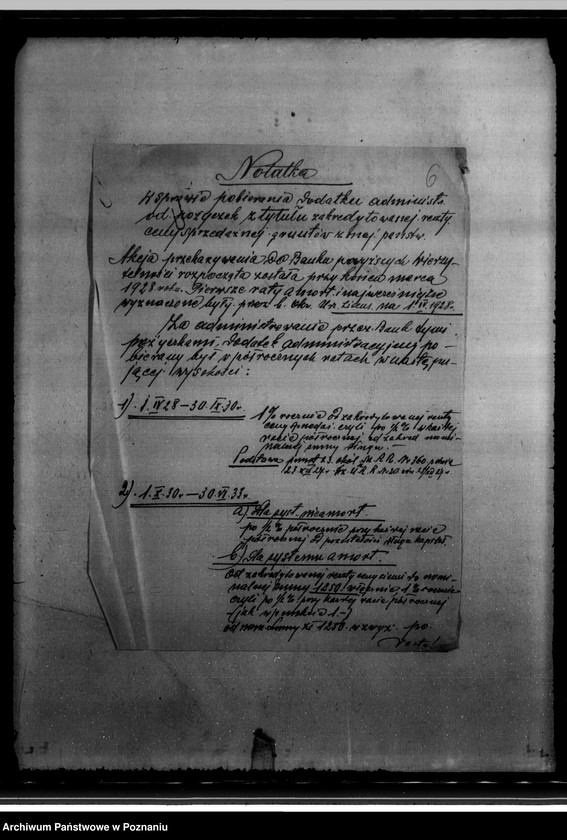 Notatka
6
w sprawie pobierania dodatku administr.
od pożyczek z tytułu zakredytowanej reszty
ceny sprzedażnej gruntów z maj. państw.
Akcja przekazywania do Banku powyższych wierzy-
telności rozpoczęta została przy końcu marca
1928 roku. Pierwsze raty amort. i najwcześniejsze
wyznaczone były przez b. Okr. Urz. Ziems. na 1 IV 1928.
Za administrowanie przez Bank tymi
pożyczkami dodatek administracyjny po-
bierany był w półrocznych ratach w następu-
jącej wysokości:
1) 1. IV 28 – 30. IX. 30 r.
1% rocznie od zakredytowanej reszty
ceny sprzedaż. czyli po ½% w każdej
racie półrocznej od zakred. nomi-
nalnej sumy długu. –
Podstawa
2) 1. X. 30 r. – 30. VI. 33 r.
a) dla syst. nieamort.
po ½% półrocznie przy każdej racie
półrocznej od pozostałości długu kapitał.
b) dla systemu amort.
Od zakredytowanej reszty ceny ziemi do nomi-
nalnej sumy 1250. włącznie 1% rocznie
czyli po ½% przy każdej racie półrocznej
(jak w punkcie 1. –)
od nom. sumy zł 1250. wzwyż po
Verte!
Archiwum Państwowe w Poznaniu